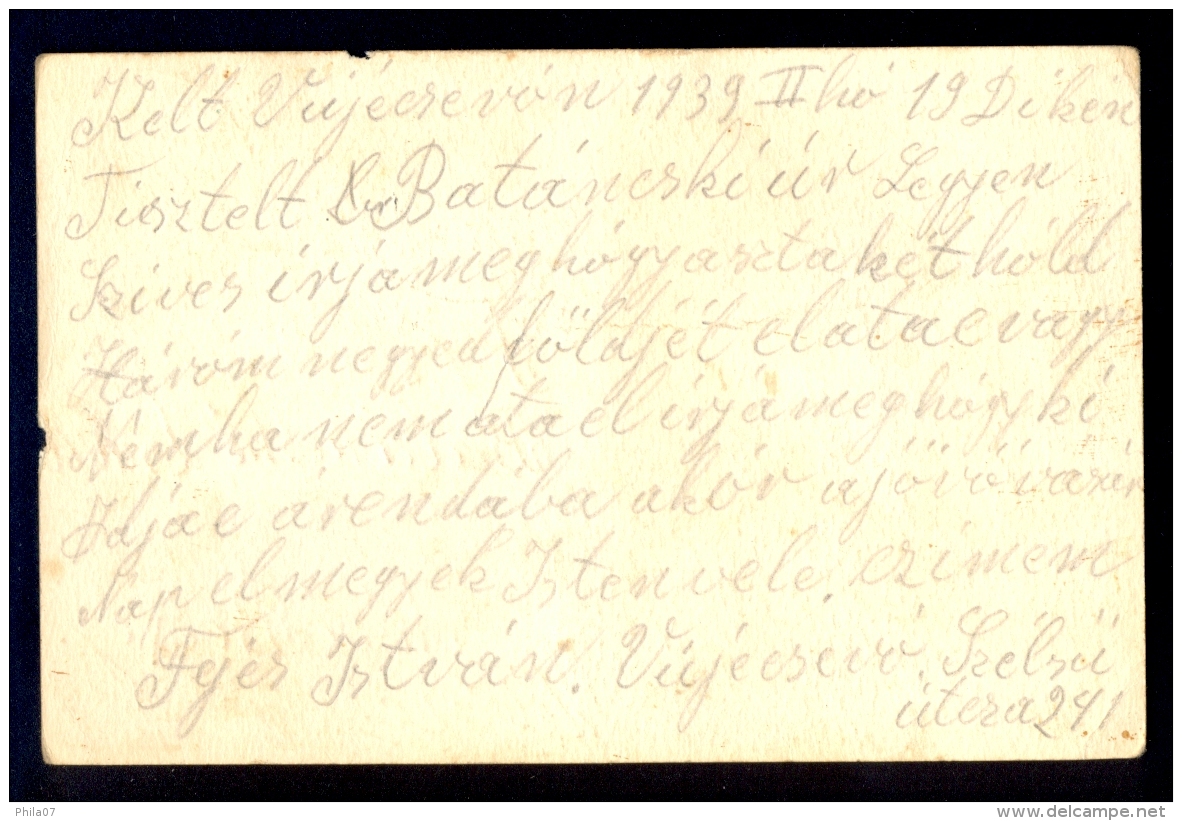 Kelt Vujécsevón 1939 II hó 19 Dikén
Tisztelt Batáncski úr Legyen
Szíves írjá megh́ógy aszta két hóld
Háróm negyed földjét elatae vagy
Nem ha nem ata el írjá meghógy ki
Adjáe árendába akór a jövö vasár
Nap el megyek Isten vele. czimem
Fejés István. Vújécsevó. Szélsü
útcza 241
Phila07
www.delcampe.net